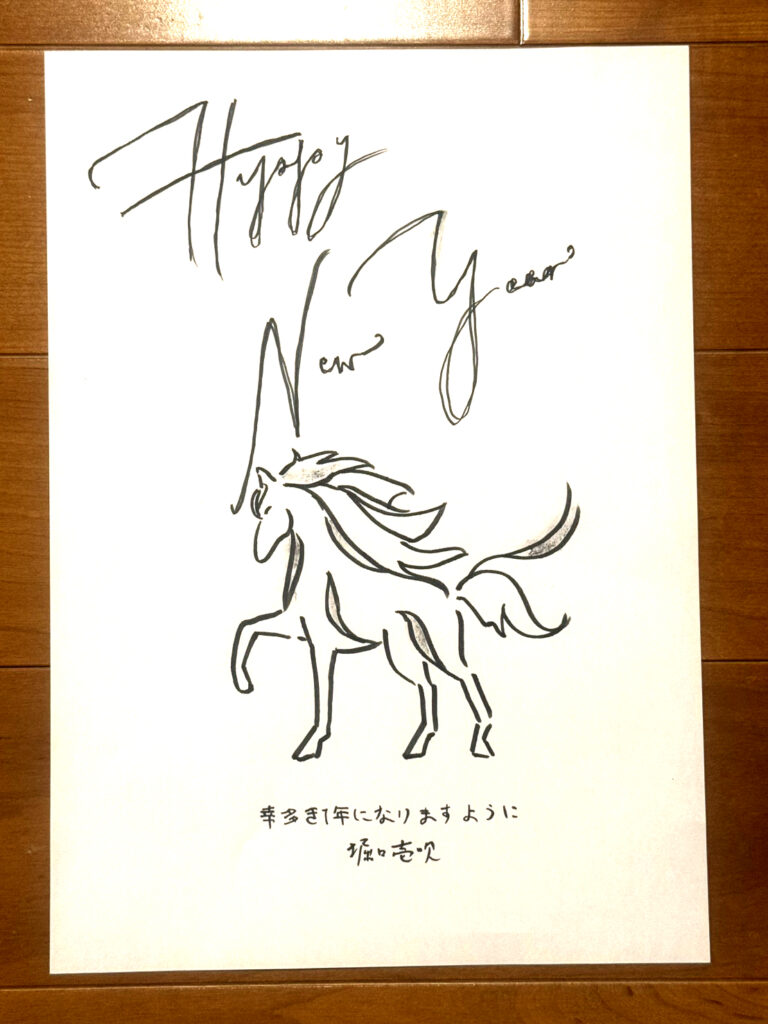 Happy
New Year
幸多き1年になりますように
堀口壱吹